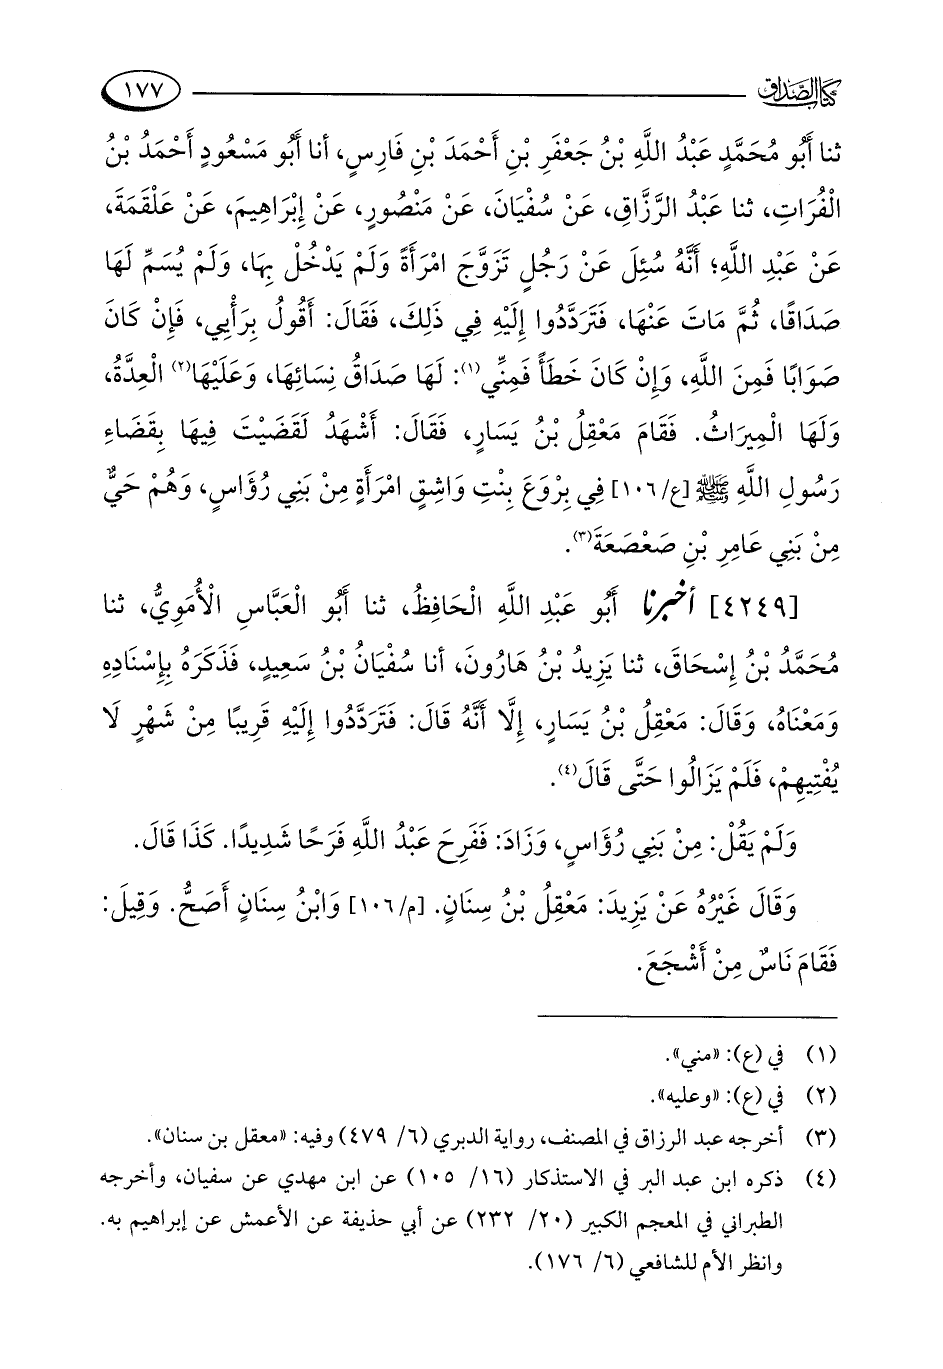 كتاب الصداق ١٧٧
ثنا أَبُو مُحَمَّدٍ عَبْدُ اللَّهِ بْنُ جَعْفَرِ بْنِ أَحْمَدَ بْنِ فَارِسٍ، أنا أَبُو مَسْعُودٍ أَحْمَدُ بْنُ
الْفُرَاتِ، ثنا عَبْدُ الرَّزَّاقِ، عَنْ سُفْيَانَ، عَنْ مَنْصُورٍ، عَنْ إِبْرَاهِيمَ، عَنْ عَلْقَمَةَ،
عَنْ عَبْدِ اللَّهِ؛ أَنَّهُ سُئِلَ عَنْ رَجُلٍ تَزَوَّجَ امْرَأَةً وَلَمْ يَدْخُلْ بِهَا، وَلَمْ يُسَمِّ لَهَا
صَدَاقًا، ثُمَّ مَاتَ عَنْهَا، فَتَرَدَّدُوا إِلَيْهِ فِي ذَلِكَ، فَقَالَ: أَقُولُ بِرَأْيِي، فَإِنْ كَانَ
صَوَابًا فَمِنَ اللَّهِ، وَإِنْ كَانَ خَطَأً فَمِنِّي(١): لَهَا صَدَاقُ نِسَائِهَا، وَعَلَيْهَا(٢) الْعِدَّةُ،
وَلَهَا الْمِيرَاثُ. فَقَامَ مَعْقِلُ بْنُ يَسَارٍ، فَقَالَ: أَشْهَدُ لَقَضَيْتَ فِيهَا بِقَضَاءِ
رَسُولِ اللَّهِ ﷺ [ع/١٠٦] فِي بِرْوَعَ بِنْتِ وَاشِقٍ امْرَأَةٍ مِنْ بَنِي رُؤَاسٍ، وَهُمْ حَيٌّ
مِنْ بَنِي عَامِرِ بْنِ صَعْصَعَةَ(٣).
[٤٢٤٩] أخبرنا أَبُو عَبْدِ اللَّهِ الْحَافِظُ، ثنا أَبُو الْعَبَّاسِ الْأُمَوِيُّ، ثنا
مُحَمَّدُ بْنُ إِسْحَاقَ، ثنا يَزِيدُ بْنُ هَارُونَ، أنا سُفْيَانُ بْنُ سَعِيدٍ، فَذَكَرَهُ بِإِسْنَادِهِ
وَمَعْنَاهُ، وَقَالَ: مَعْقِلُ بْنُ يَسَارٍ، إِلَّا أَنَّهُ قَالَ: فَتَرَدَّدُوا إِلَيْهِ قَرِيبًا مِنْ شَهْرٍ لَا
يُفْتِيهِمْ، فَلَمْ يَزَالُوا حَتَّى قَالَ(٤).
وَلَمْ يَقُلْ: مِنْ بَنِي رُؤَاسٍ، وَزَادَ: فَفَرِحَ عَبْدُ اللَّهِ فَرَحًا شَدِيدًا. كَذَا قَالَ.
وَقَالَ غَيْرُهُ عَنْ يَزِيدَ: مَعْقِلُ بْنُ سِنَانٍ. [م/١٠٦] وَابْنُ سِنَانٍ أَصَحُّ. وَقِيلَ:
فَقَامَ نَاسٌ مِنْ أَشْجَعَ.
(١) في (ع): «مني».
(٢) في (ع): «وعليه».
(٣) أخرجه عبد الرزاق في المصنف، رواية الدبري (٦/ ٤٧٩) وفيه: «معقل بن سنان».
(٤) ذكره ابن عبد البر في الاستذكار (١٦/ ١٠٥) عن ابن مهدي عن سفيان، وأخرجه
الطبراني في المعجم الكبير (٢٠/ ٢٣٢) عن أبي حذيفة عن الأعمش عن إبراهيم به.
وانظر الأم للشافعي (٦/ ١٧٦).